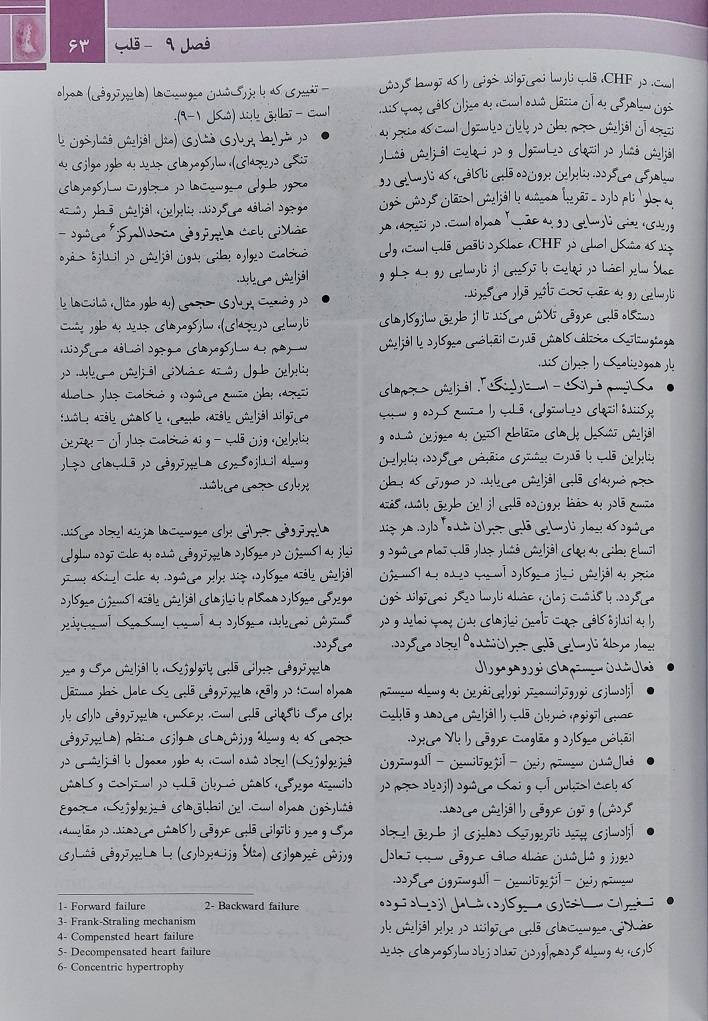 فصل ۹ - قلب
۶۳
است. در CHF، قلب نارسا نمی‌تواند خونی را که توسط گردش
خون سیاهرگی به آن منتقل شده است، به میزان کافی پمپ کند.
نتیجه آن افزایش حجم بطن در پایان دیاستول است که منجر به
افزایش فشار در انتهای دیاستول و در نهایت افزایش فشار
سیاهرگی می‌گردد. بنابراین برون‌ده قلبی ناکافی، که نارسایی رو
به جلو۱ نام دارد ـ تقریباً همیشه با افزایش احتقان گردش خون
وریدی، یعنی نارسایی رو به عقب۲ همراه است. در نتیجه، هر
چند که مشکل اصلی در CHF، عملکرد ناقص قلب است، ولی
عملاً سایر اعضا در نهایت با ترکیبی از نارسایی رو به جلو و
نارسایی رو به عقب تحت تأثیر قرار می‌گیرند.
دستگاه قلبی عروقی تلاش می‌کند تا از طریق سازوکارهای
هومئوستاتیک مختلف کاهش قدرت انقباضی میوکارد یا افزایش
بار همودینامیک را جبران کند.
● مکانیسم فرانک - استارلینگ۳. افزایش حجم‌های
پرکنندهٔ انتهای دیاستولی، قلب را متسع کرده و سبب
افزایش تشکیل پل‌های متقاطع اکتین به میوزین شده و
بنابراین قلب با قدرت بیشتری منقبض می‌گردد، بنابراین
حجم ضربه‌ای قلبی افزایش می‌یابد. در صورتی که بطن
متسع قادر به حفظ برون‌ده قلبی از این طریق باشد، گفته
می‌شود که بیمار نارسایی قلبی جبران شده۴ دارد. هر چند
اتساع بطنی به بهای افزایش فشار جدار قلب تمام می‌شود و
منجر به افزایش نیاز میوکارد آسیب دیده به اکسیژن
می‌گردد. با گذشت زمان، عضله نارسا دیگر نمی‌تواند خون
را به اندازهٔ کافی جهت تأمین نیازهای بدن پمپ نماید و در
بیمار مرحلهٔ نارسایی قلبی جبران‌نشده۵ ایجاد می‌گردد.
● فعال‌شدن سیستم‌های نوروهومورال
● آزادسازی نوروترانسمیتر نوراپی‌نفرین به وسیله سیستم
عصبی اتونوم، ضربان قلب را افزایش می‌دهد و قابلیت
انقباض میوکارد و مقاومت عروقی را بالا می‌برد.
● فعال‌شدن سیستم رنین - آنژیوتانسین - آلدوسترون
که باعث احتباس آب و نمک می‌شود (ازدیاد حجم در
گردش) و تون عروقی را افزایش می‌دهد.
● آزادسازی پپتید ناتریورتیک دهلیزی از طریق ایجاد
دیورز و شل‌شدن عضله صاف عروقی سبب تعادل
سیستم رنین - آنژیوتانسین - آلدوسترون می‌گردد.
● تغییرات ساختاری میوکارد، شامل ازدیاد توده
عضلانی. میوسیت‌های قلبی می‌توانند در برابر افزایش بار
کاری، به وسیله گردهم‌آوردن تعداد زیاد سارکومرهای جدید
- تغییری که با بزرگ‌شدن میوسیت‌ها (هایپرتروفی) همراه
است - تطابق یابند (شکل ۱-۹).
● در شرایط پرباری فشاری (مثل افزایش فشارخون یا
تنگی دریچه‌ای)، سارکومرهای جدید به طور موازی به
محور طولی میوسیت‌ها در مجاورت سارکومرهای
موجود اضافه می‌گردند. بنابراین، افزایش قطر رشته
عضلانی باعث هایپرتروفی متحدالمرکز۶ می‌شود -
ضخامت دیواره بطنی بدون افزایش در اندازهٔ حفره
افزایش می‌یابد.
● در وضعیت پرباری حجمی (به طور مثال، شانت‌ها یا
نارسایی دریچه‌ای)، سارکومرهای جدید به طور پشت
سرهم به سارکومرهای موجود اضافه می‌گردند،
بنابراین طول رشته عضلانی افزایش می‌یابد. در
نتیجه، بطن متسع می‌شود، و ضخامت جدار حاصله
می‌تواند افزایش یافته، طبیعی، یا کاهش یافته باشد؛
بنابراین، وزن قلب - و نه ضخامت جدار آن - بهترین
وسیله اندازه‌گیری هایپرتروفی در قلب‌های دچار
پرباری حجمی می‌باشد.
هایپرتروفی جبرانی برای میوسیت‌ها هزینه ایجاد می‌کند.
نیاز به اکسیژن در میوکارد هایپرتروفی شده به علت توده سلولی
افزایش یافته میوکارد، چند برابر می‌شود. به علت اینکه بستر
مویرگی میوکارد همگام با نیازهای افزایش یافته اکسیژن میوکارد
گسترش نمی‌یابد، میوکارد به آسیب ایسکمیک آسیب‌پذیر
می‌گردد.
هایپرتروفی جبرانی قلبی پاتولوژیک، با افزایش مرگ و میر
همراه است؛ در واقع، هایپرتروفی قلبی یک عامل خطر مستقل
برای مرگ ناگهانی قلبی است. برعکس، هایپرتروفی دارای بار
حجمی که به وسیلهٔ ورزش‌های هوازی منظم (هایپرتروفی
فیزیولوژیک) ایجاد شده است، به طور معمول با افزایشی در
دانسیته مویرگی، کاهش ضربان قلب در استراحت و کاهش
فشارخون همراه است. این انطباق‌های فیزیولوژیک، مجموع
مرگ و میر و ناتوانی قلبی عروقی را کاهش می‌دهند. در مقایسه،
ورزش غیرهوازی (مثلاً وزنه‌برداری) با هایپرتروفی فشاری
1- Forward failure 2- Backward failure
3- Frank-Straling mechanism
4- Compensted heart failure
5- Decompensated heart failure
6- Concentric hypertrophy